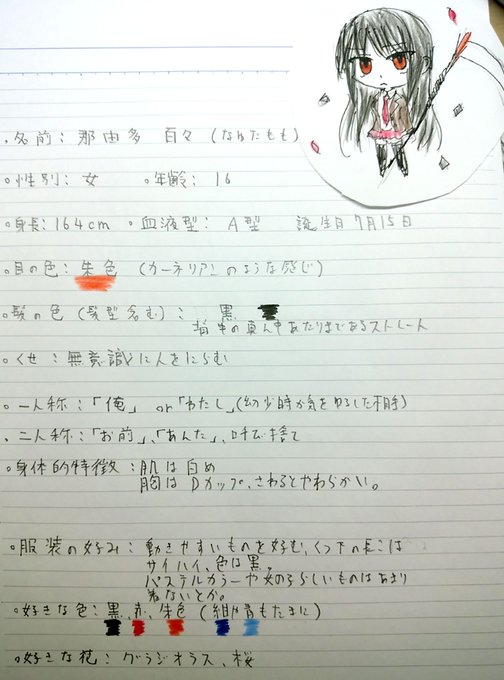 ・名前：那由多 百々(なゆたもも)
・性別：女 ・年齢：16
・身長：164cm ・血液型：A型 誕生日7月15日
・目の色：朱色 (カーネリアンのような感じ)
・髪の色(髪型含む)：黒
背中の真ん中あたりまであるストレート
・くせ：無意識に人をにらむ
・一人称：「俺」or「わたし」(幼少時か気をゆるした相手)
・二人称：「お前」、「あんた」、呼び捨て
・身体的特徴：肌は白め
胸はDカップ、さわるとやわらかい。
・服装の好み：動きやすいものを好む、くつ下の長さは
サイハイ、色は黒。
パステルカラーや女の子らしいものはあまり
着ないとか。
・好きな色：黒、赤、朱色 (紺や青もたまに)
・好きな花：グラジオラス、桜